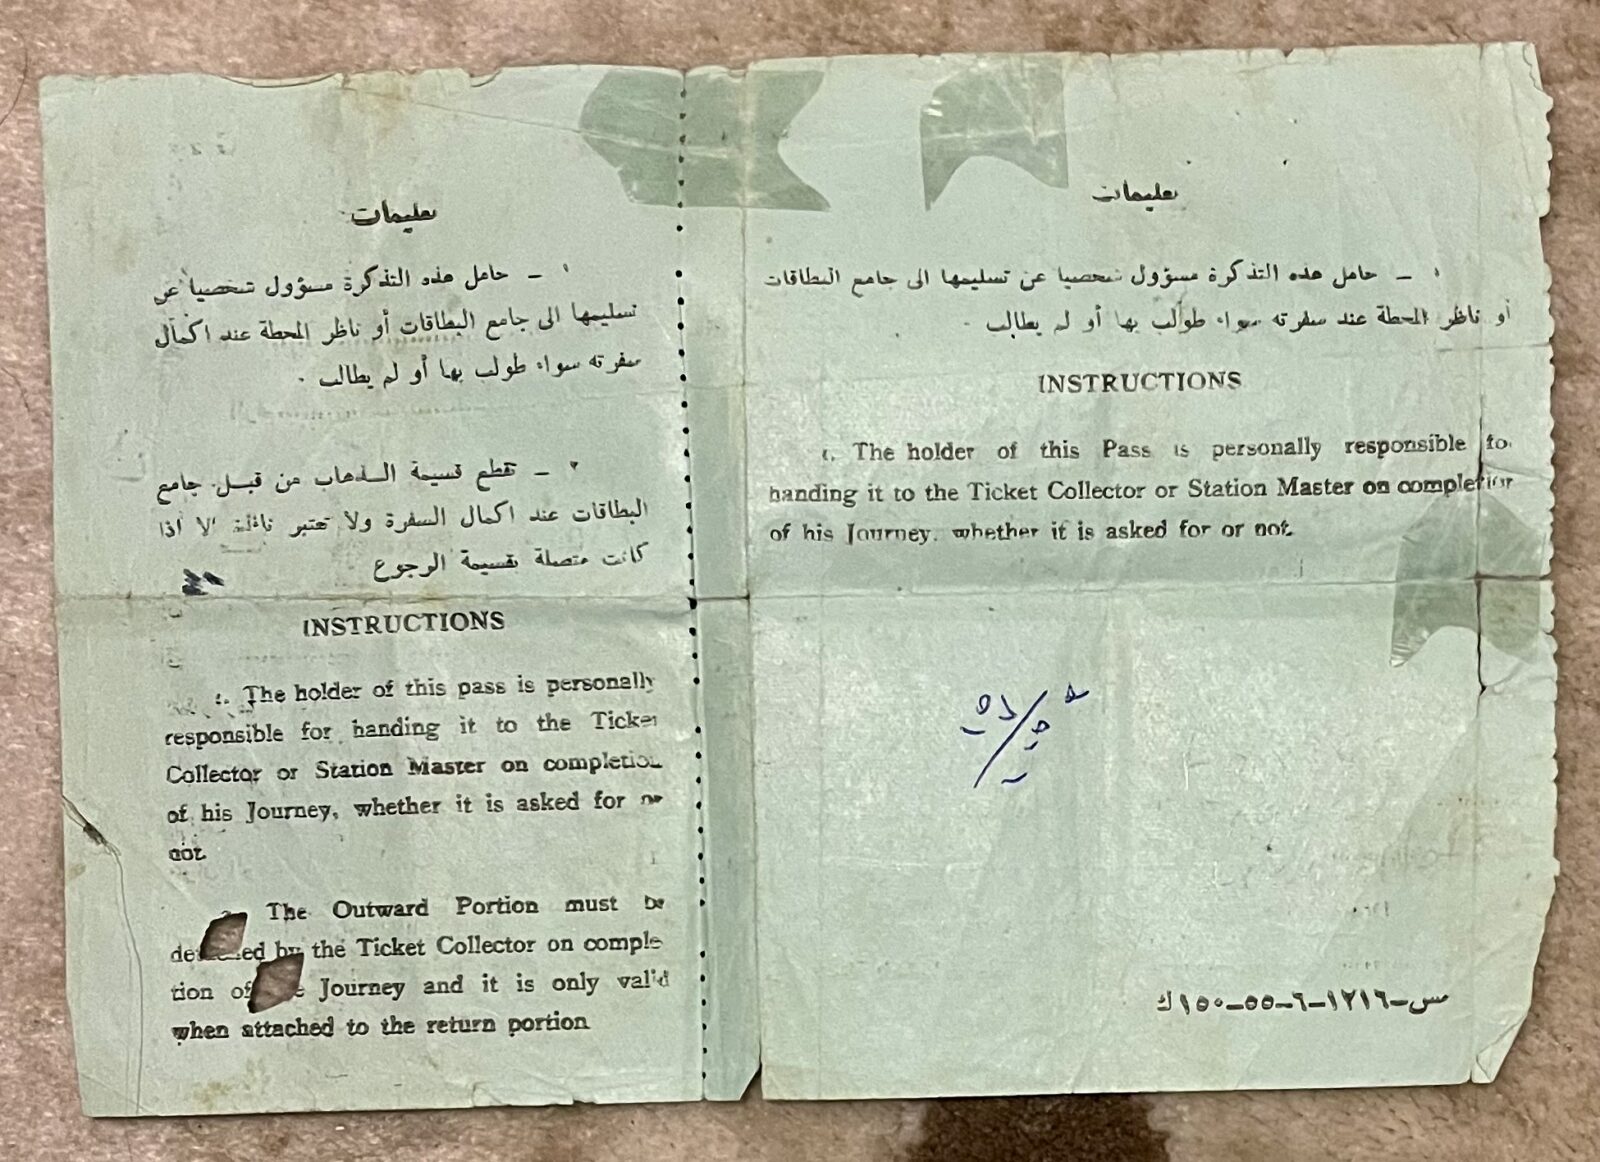 تعليمات
١ - حامل هذه التذكرة مسؤول شخصيا عن
تسليمها الى جامع البطاقات أو ناظر المحطة عند اكمال
سفرته سواء طولب بها أو لم يطالب ٠
٢ - تقطع قسيمة الذهاب من قبل جامع
البطاقات عند اكمال السفرة ولا تعتبر نافذة الا اذا
كانت متصلة بقسيمة الرجوع
INSTRUCTIONS
1. The holder of this pass is personally
responsible for handing it to the Ticket
Collector or Station Master on completion
of his Journey, whether it is asked for or
not.
2. The Outward Portion must be
detached by the Ticket Collector on comple
tion of the Journey and it is only valid
when attached to the return portion
تعليمات
١ - حامل هذه التذكرة مسؤول شخصيا عن تسليمها الى جامع البطاقات
أو ناظر المحطة عند سفرته سواء طولب بها أو لم يطالب ٠
INSTRUCTIONS
1. The holder of this Pass is personally responsible for
handing it to the Ticket Collector or Station Master on completion
of his Journey, whether it is asked for or not.
مس-١٢١٦-٦-٥٥-١٥٠ك